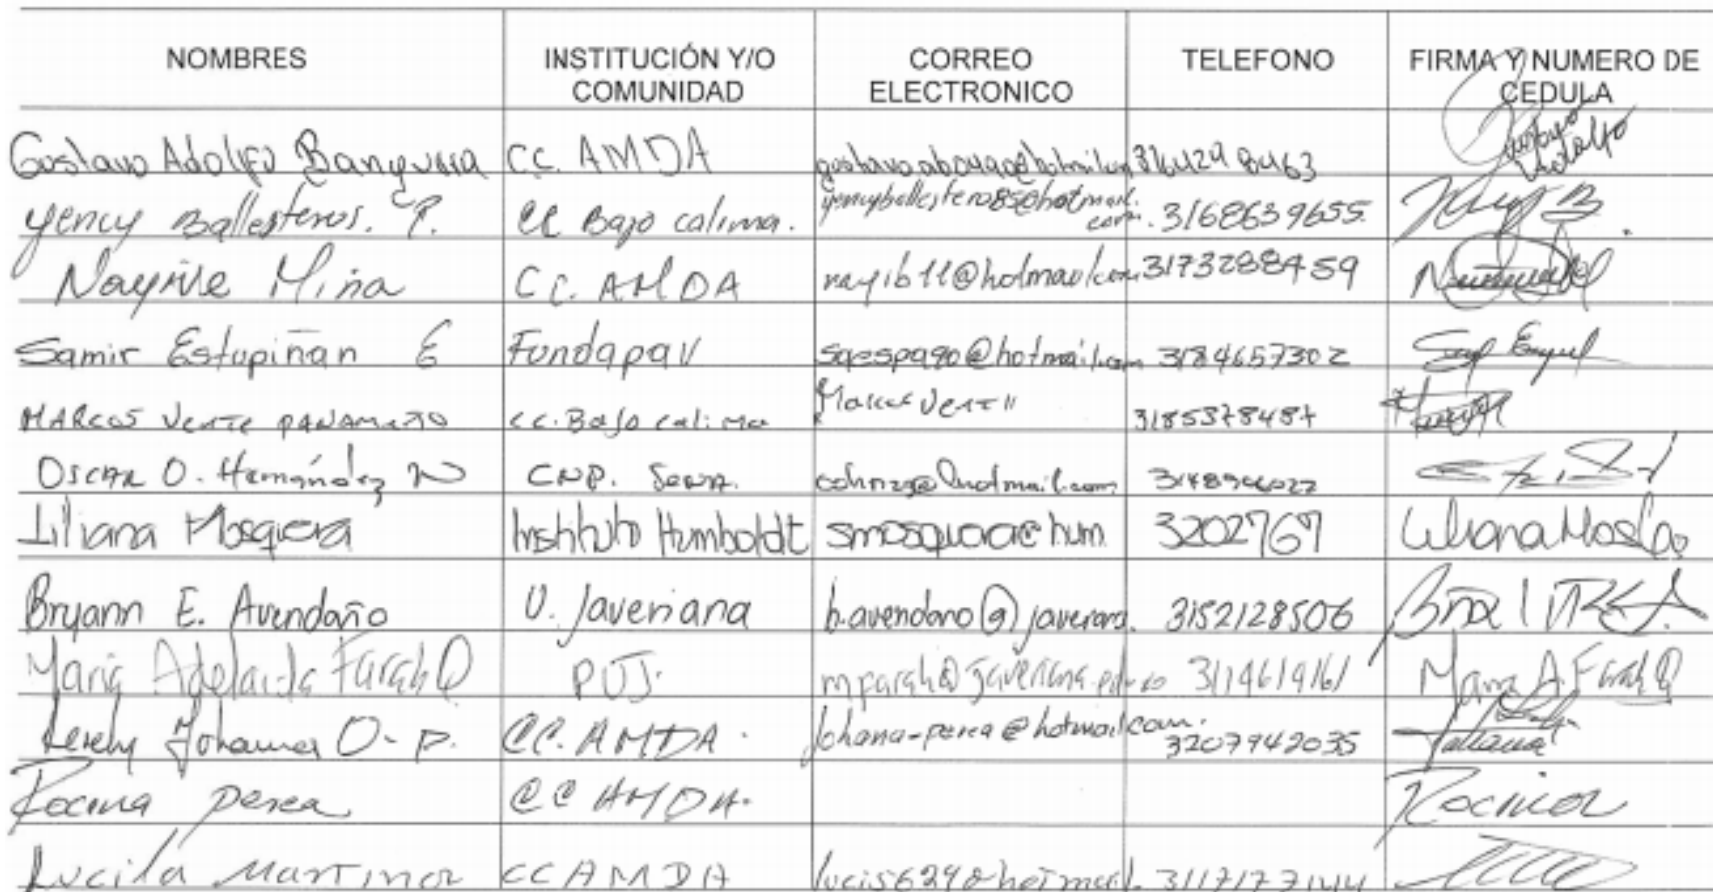 NOMBRES INSTITUCIÓN Y/O COMUNIDAD CORREO ELECTRONICO TELEFONO FIRMA Y NUMERO DE CEDULA
Gustavo Adolfo Banguera CC. AMDA 3164298463 Gustavo Adolfo
Yency Ballesteros. P. CC Bajo calima. yencyballestero85@hotmail.com. 3168639655.
Nayive Mina CC. AMDA nayib11@hotmail.com 3173288459
Samir Estupiñan E Fundapav saespa90@hotmail.com 3184657302
MARCOS Vente PANAMEÑO CC. Bajo calima 3185378487
OSCAR O. Hernández N CNP. @hotmail.com
Liliana Mosquera Instituto Humboldt smosquera@hum 3202767 Liliana
Bryann E. Avendaño U. Javeriana b.avendano@javeriana. 3152128506
Maria Adelaida Farah Q PUJ. mfarah@javeriana.edu.co 3114619161 Maria A. Farah Q
Johanna O. P. CC. AMDA. Johana-perea@hotmail.com. 3207942035
perea CC AMDA.
Lucila Martinez CC AMDA 3117177144